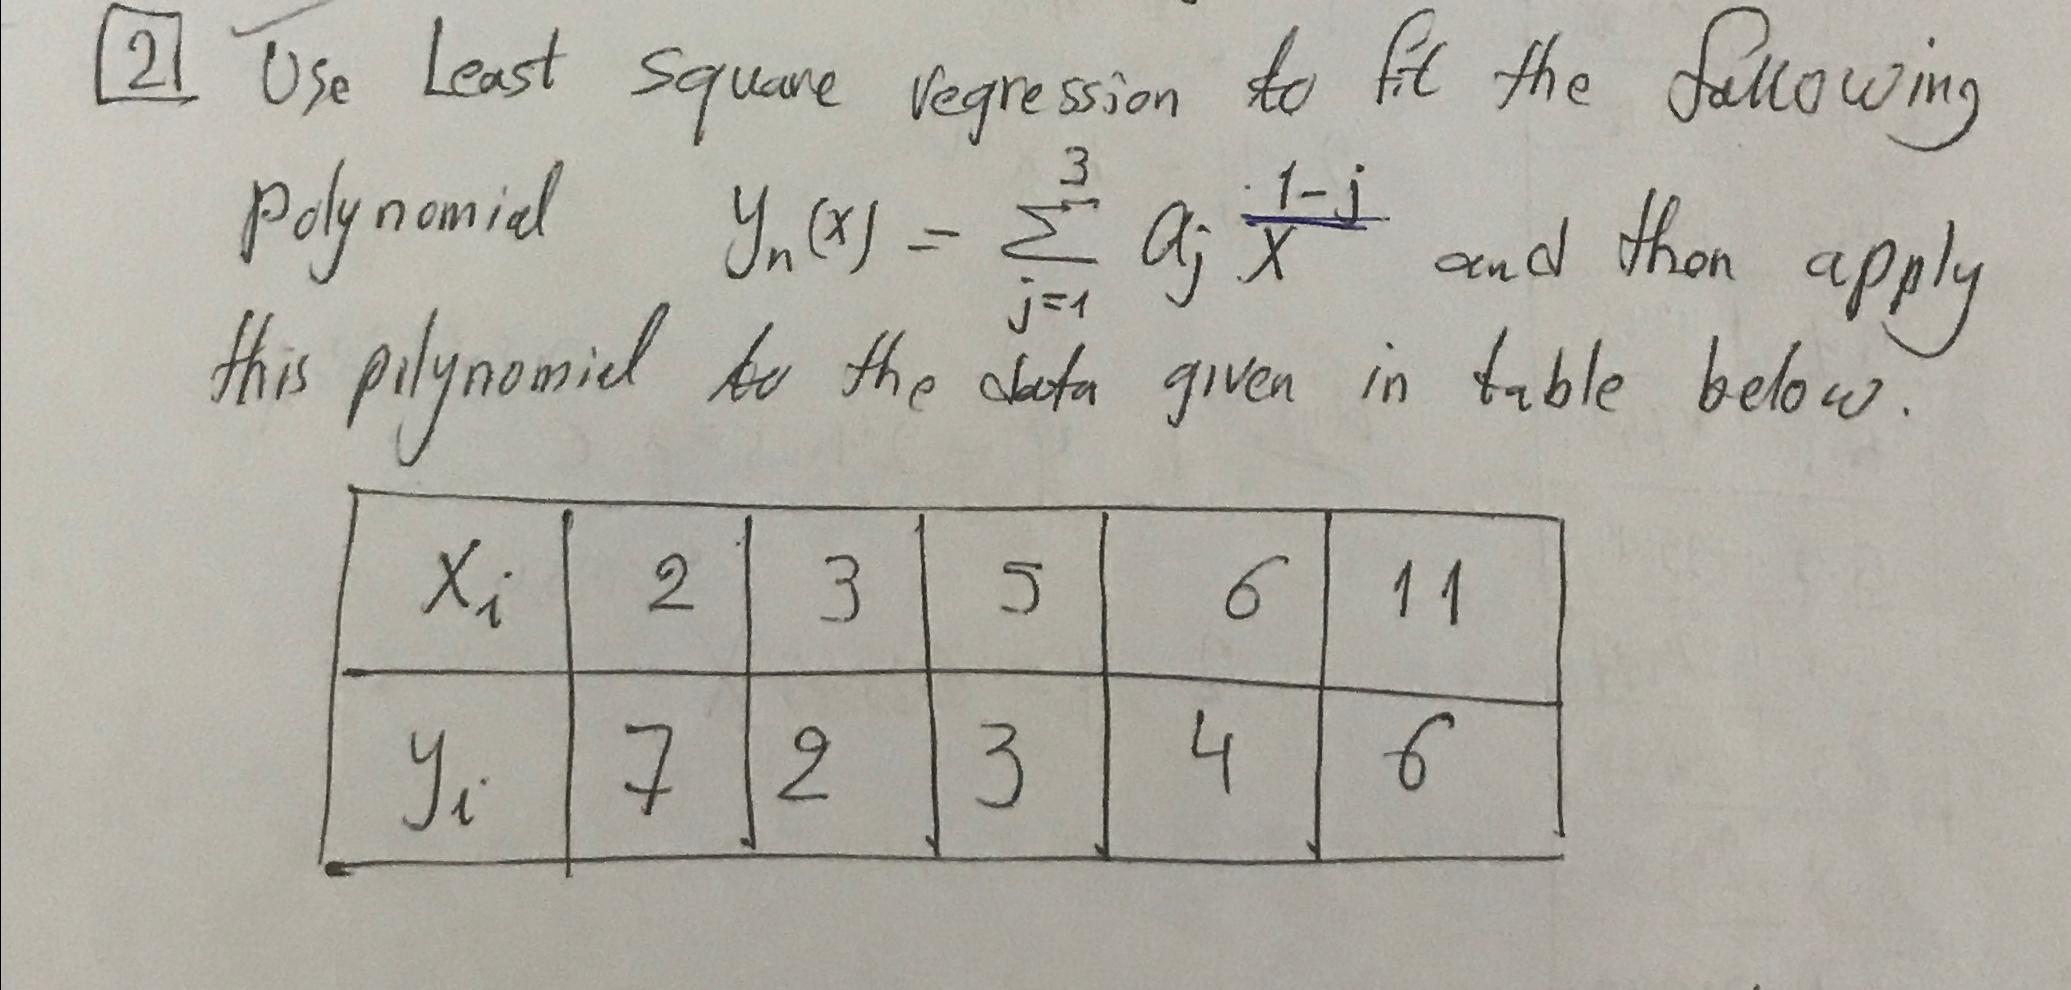 2 Use Least square regression to fit the following
polynomial yn(x) = 3 Σ j=1 aj 1-j / x and then apply
this pilynomiel to the data given in table below.
xi 2 3 5 6 11
yi 7 2 3 4 6